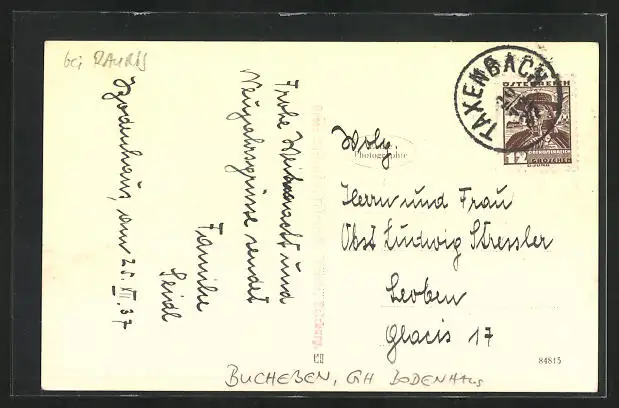 bei RAURIS
Bodenhaus, am 25. XII. 37
Frohe Weihnacht und
Neujahrsgrüsse sendet
Familie
Seidl
TAXENBACH
ÖSTERREICH
12
GROSCHEN
Wolg.
Photographie
Herrn und Frau
Obst. Ludwig Stressler
Leoben
Glacis 17
84815
BUCHEBEN, GH BODENHAUS